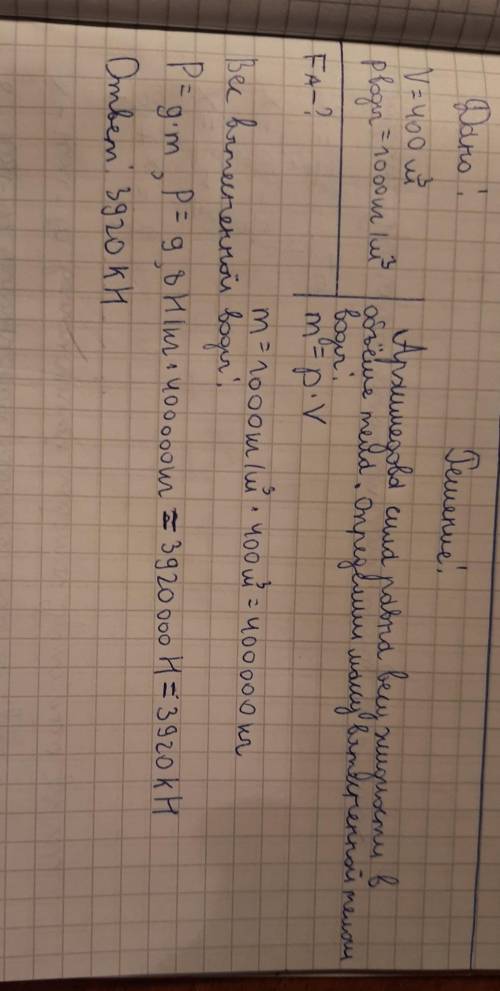 Дано:
V=400 м³
ρ воды = 1000 кг/м³
FA-?
Решение:
Архимедова сила равна весу жидкости в
объёме тела. Определим массу вытесненной телом
воды:
m = ρ·V
m = 1000 кг/м³ · 400 м³ = 400000 кг
Вес вытесненной воды:
P = g·m, P = 9,8 Н/кг · 400000 кг = 3920000 Н = 3920 кН
Ответ: 3920 кН